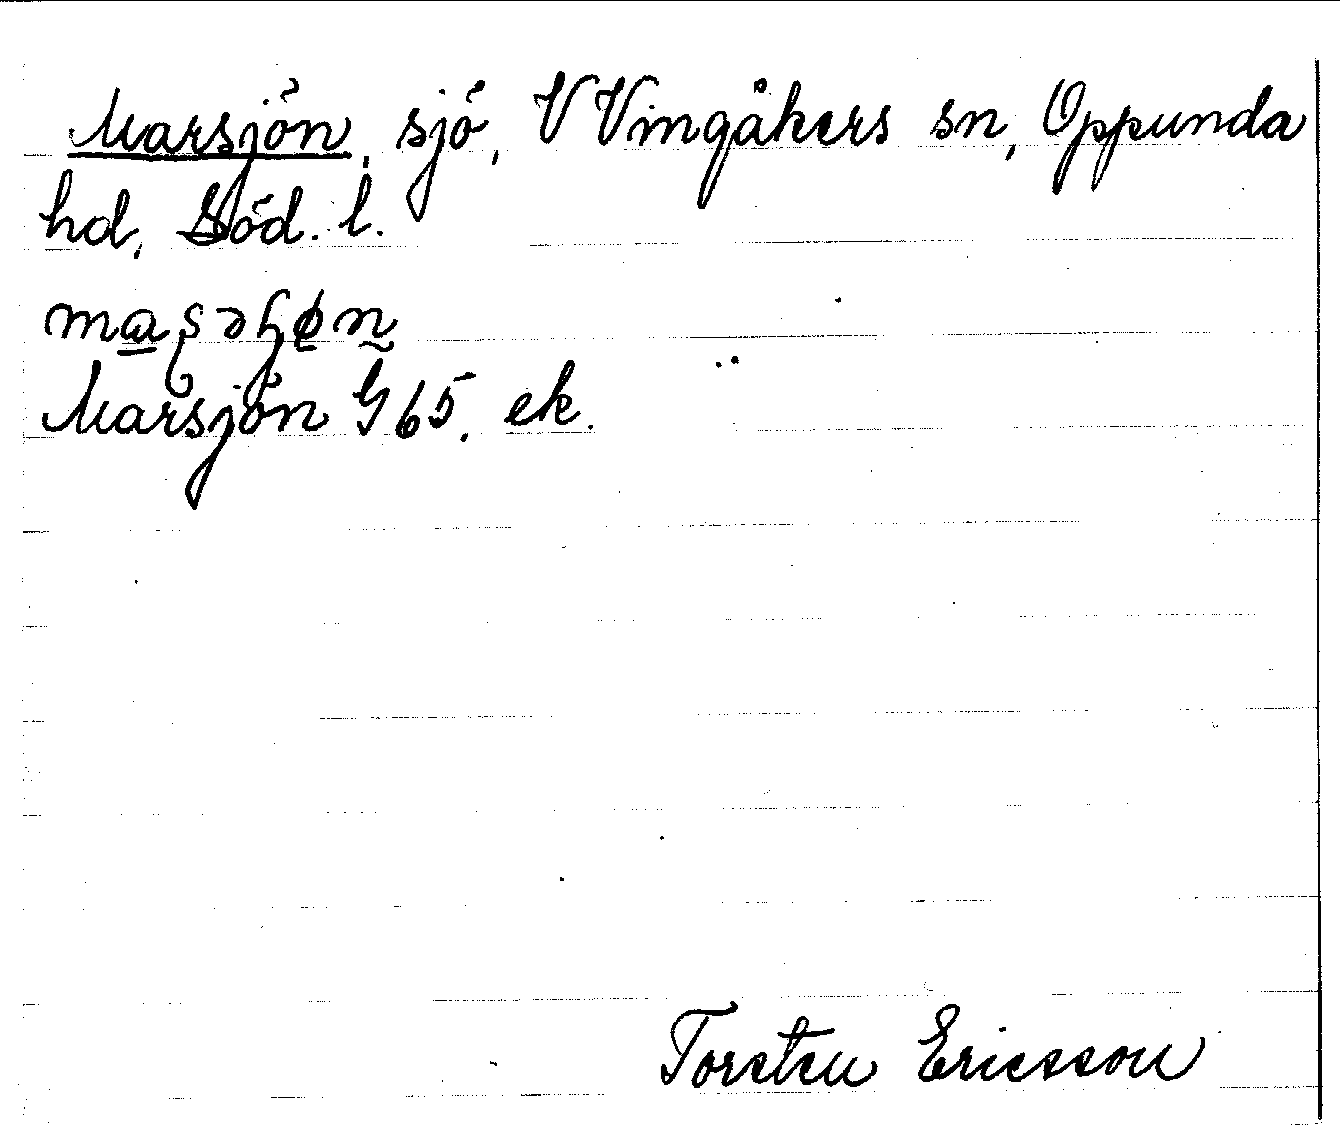 Marsjön, sjö, V Vingåkers sn, Oppunda
hd, Söd. l.
Marsjön G 65. ek.
Torsten Ericsson